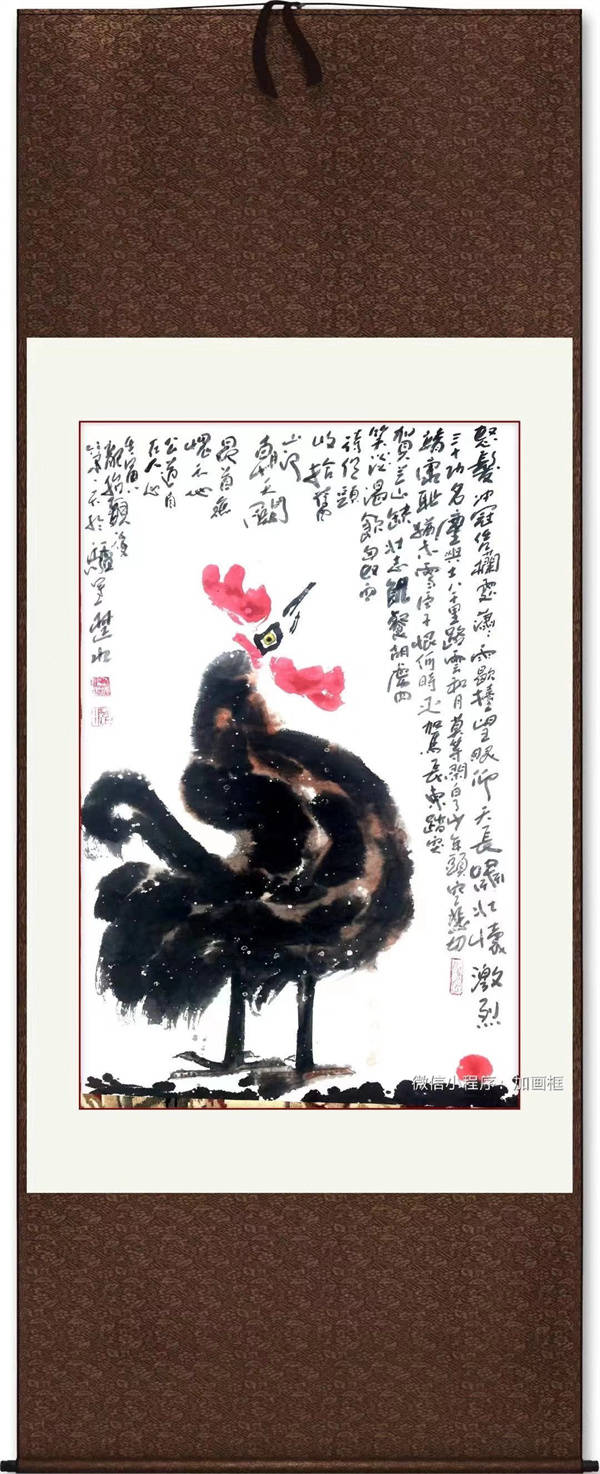 怒髮冲冠凭欄處瀟瀟雨歇抬望眼仰天長嘯壯懷激烈
三十功名塵與土八千里路雲和月莫等閑白了少年頭空悲切
靖康耻猶未雪臣子恨何時灭駕長車踏破
賀兰山缺壮志飢餐胡虜肉
笑谈渴飲匈奴血
待從頭
收拾舊
山河
朝天闕
昂首無
愧天地
公道自
在人心
楚水
微信小程序：加画框